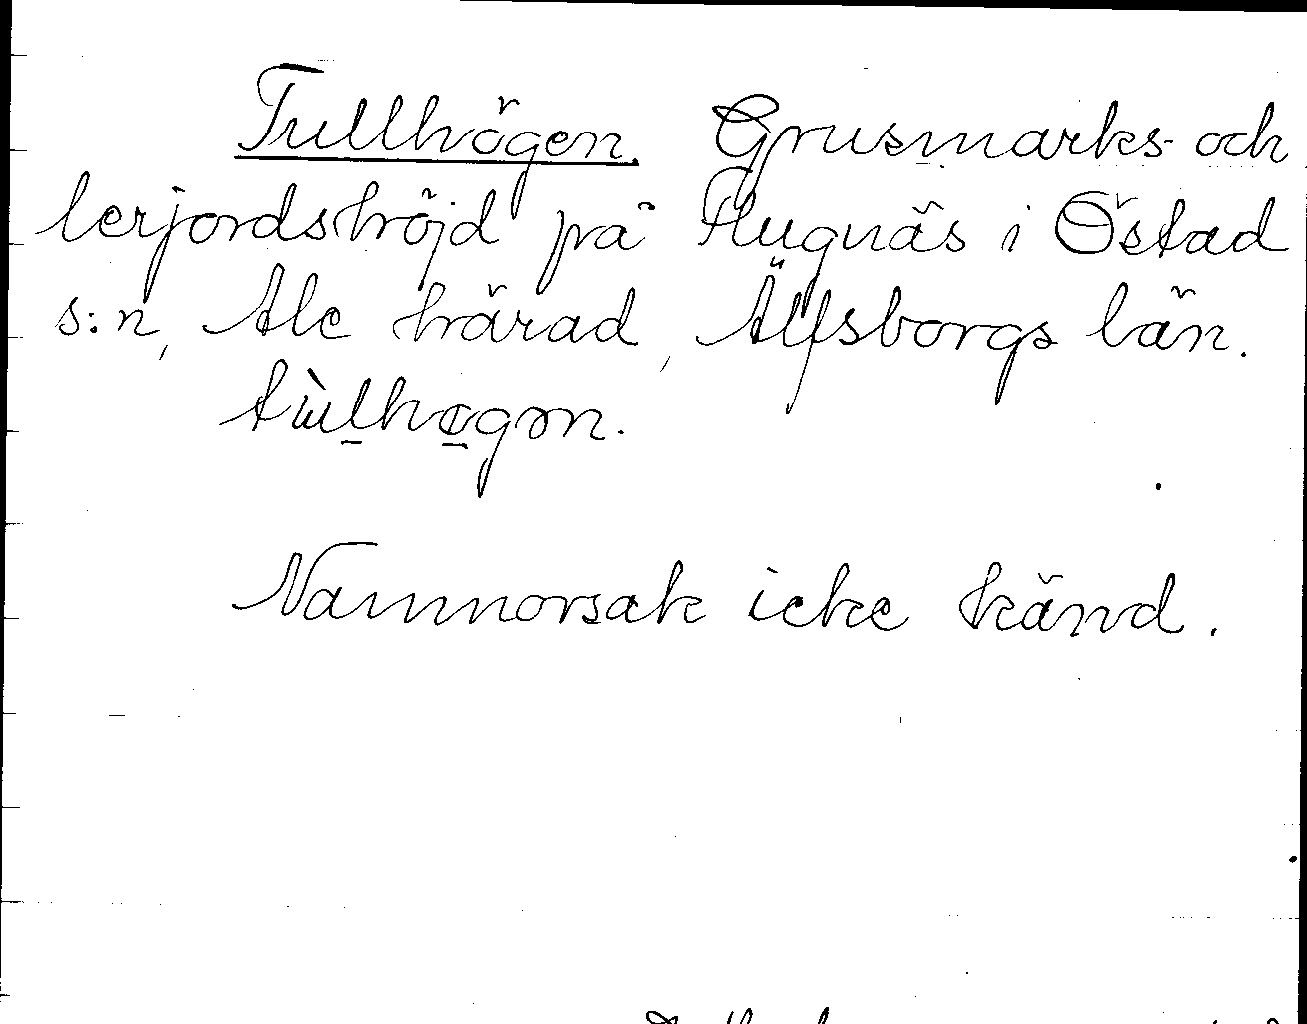 Tullhögen. Grusmarks- och
lerjordshöjd på Flugnäs i Östad
s:n, Ale härad, Älfsborgs län.
Namnorsak icke känd.